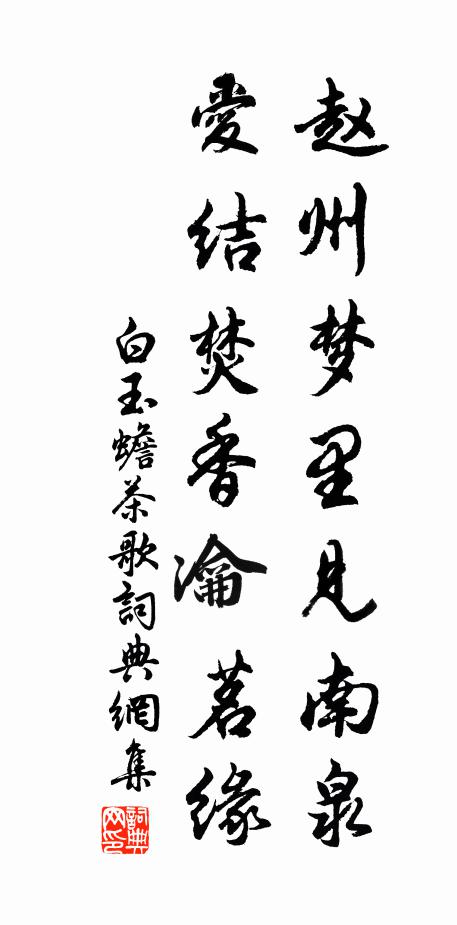 赵州梦里见南泉
愛结焚香瀹茗緣
白玉蟾茶歌詞典網集
詞典网印